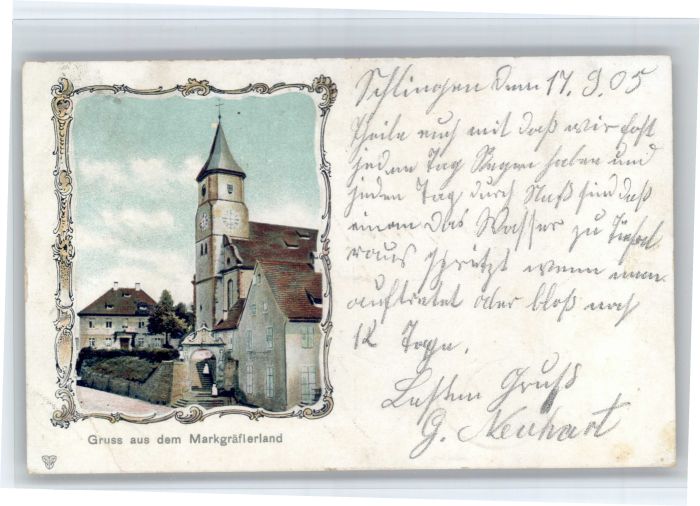 Schlingen den 17. 9. 05
Theile euch mit daß wir fast
jeden Tag Regen haben und
jeden Tag durch Naß sind daß
einem das Wasser zu
raus spritzt wenn man
auftretet oder bloß noch
12 Tage.
Besten Gruß
G. Neuhart
Gruss aus dem Markgräflerland